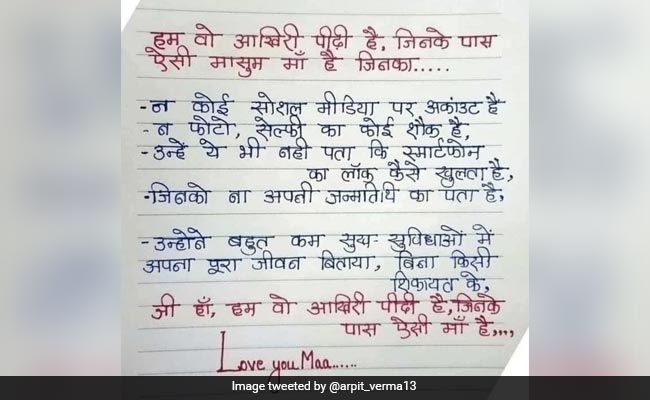 हम वो आखिरी पीढ़ी है, जिनके पास
ऐसी मासुम माँ है जिनका.....
-न कोई सोशल मीडिया पर अकांउट है
-न फोटो, सेल्फी का कोई शौक है,
-उन्हें ये भी नही पता कि स्मार्टफोन
का लॉक कैसे खुलता है,
-जिनको ना अपनी जन्मतिथि का पता है,
-उन्होने बहुत कम सुख- सुविधाओं में
अपना पूरा जीवन बिताया, बिना किसी
शिकायत के,
जी हाँ, हम वो आखिरी पीढ़ी है,जिनके
पास ऐसी माँ है,,,,
Love you Maa......
Image tweeted by @arpit_verma13